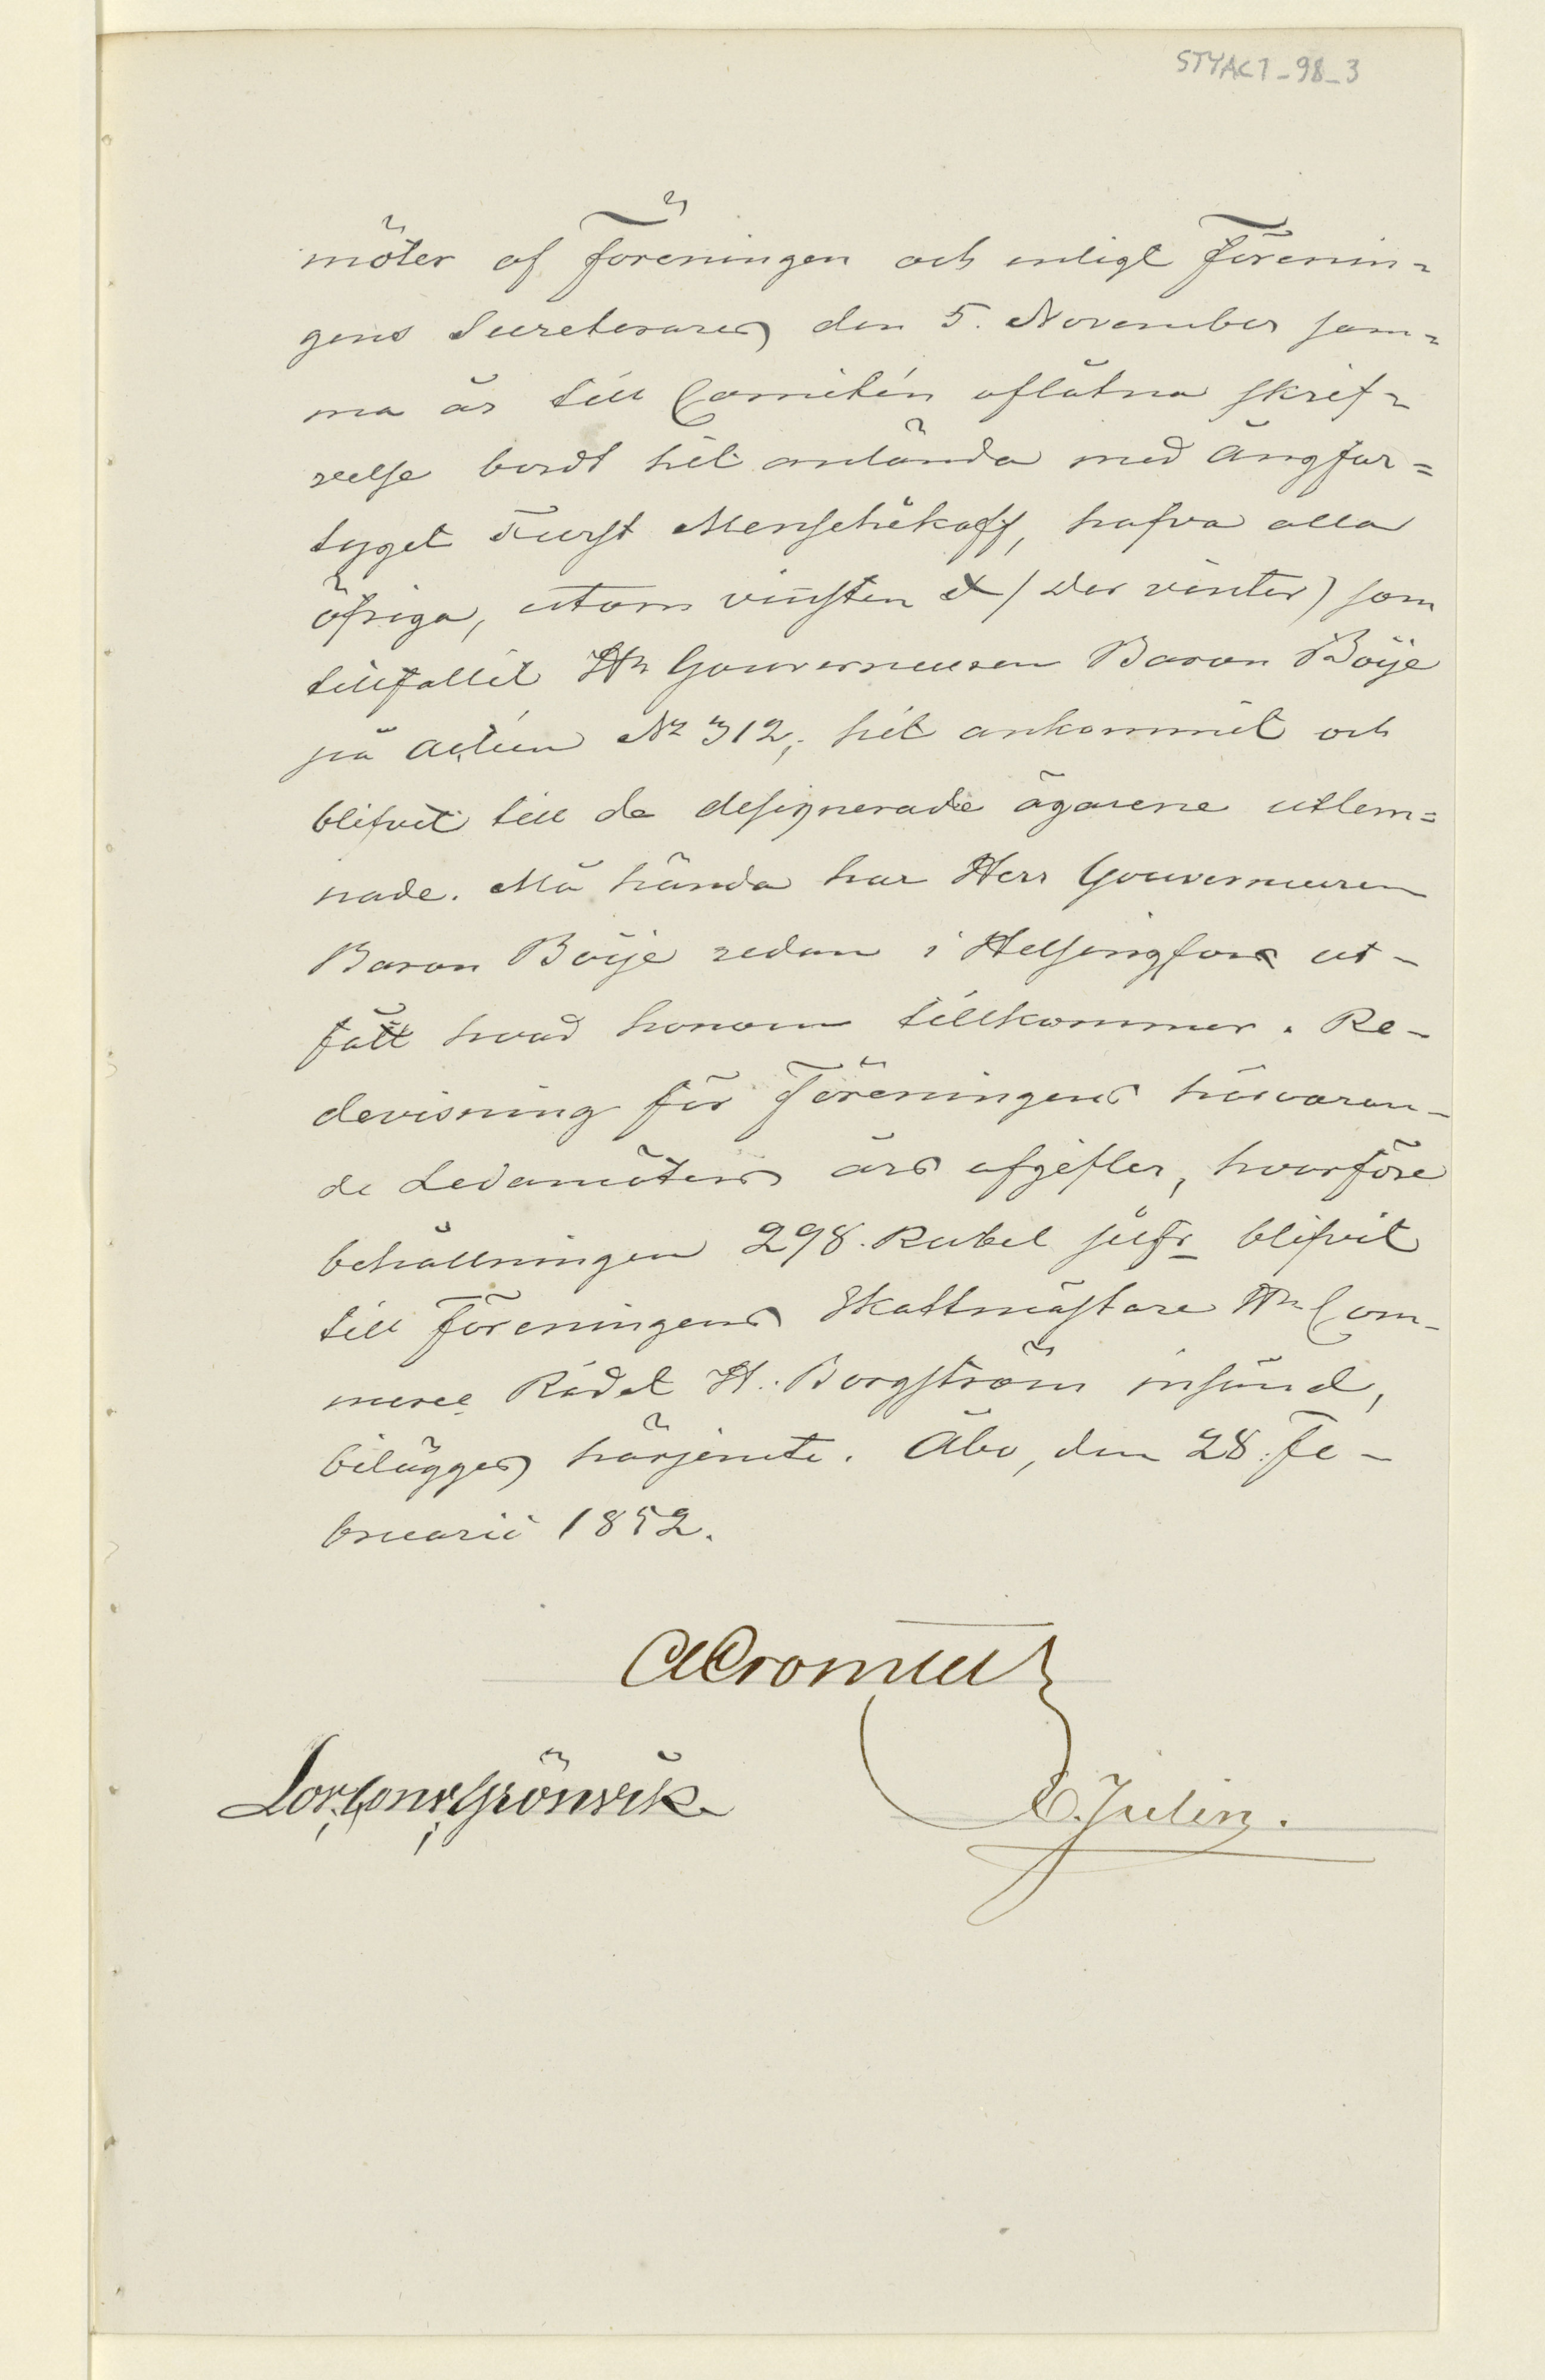 STYACT_98_3
möter af Föreningen och enligt Förenin=
gens Secreterares den 5. November sam=
ma år till Comitén aflåtna skrif=
velse bordt hit anlända med Ångfar=
tyget Furst Menschikoff, hafva alla
öfriga, utom vinsten (der vinter) som
tillfallit Hr Gouverneuren Baron Böije
på Actien No 312, hit ankommit och
blifvit till de designerade ägarene utlem=
nade. Må hända har Herr Gouverneuren
Baron Böije redan i Helsingfors ut-
fått hvad honom tillkommer. Re-
devisning för Föreningens härvaran-
de Ledamöters års afgifter, hvarföre
behållningen 298. Rubel silfr blifvit
till Föreningens Skattmästare Hr Com-
merce Rådet H. Borgström insänd,
bilägges härjemte. Åbo, den 28. Fe-
bruarii 1852.
Grönvik
E. Julin.